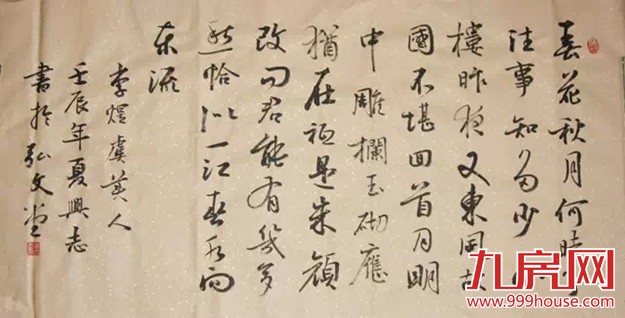 春花秋月何時了
往事知多少小
樓昨夜又東風故
國不堪回首月明
中雕欄玉砌應
猶在祇是朱顏
改問君能有幾多
愁恰似一江春水向
東流
李煜虞美人
壬辰年夏興志
書於弘文堂
九房网
www.999house.com